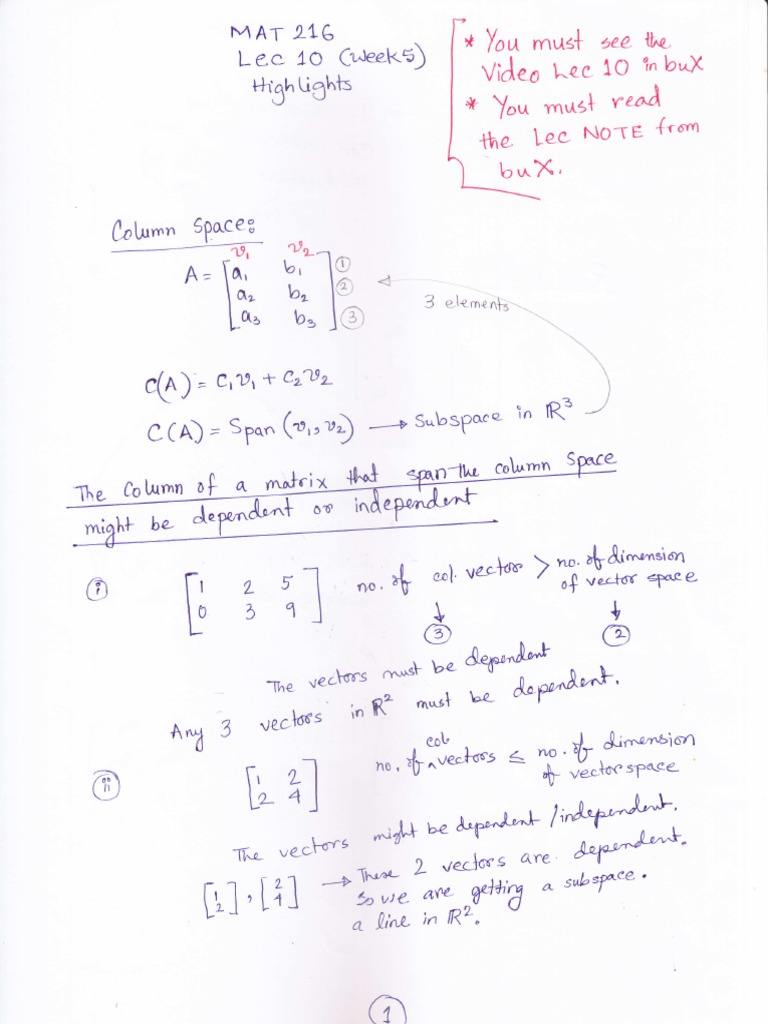 MAT 216
Lec 10 (week5)
Highlights
* You must see the
Video Lec 10 in buX
* You must read
the Lec NOTE from
buX.
Column Space:
v₁ v₂
A = [a₁ b₁] ①
[a₂ b₂] ②
[a₃ b₃] ③
3 elements
C(A) = C₁v₁ + C₂v₂
C(A) = Span (v₁, v₂) → Subspace in ℝ³
The Column of a matrix that span the column Space
might be dependent or independent
(i) [1 2 5] no. of col. vectors > no. of dimension
[0 3 9] of vector space
③ ②
The vectors must be dependent
Any 3 vectors in ℝ² must be dependent.
(ii) [1 2] no. of col vectors ≤ no. of dimension
[2 4] of vector space
The vectors might be dependent / independent.
[1 2], [2 4] → These 2 vectors are dependent.
So we are getting a subspace.
a line in ℝ².
1